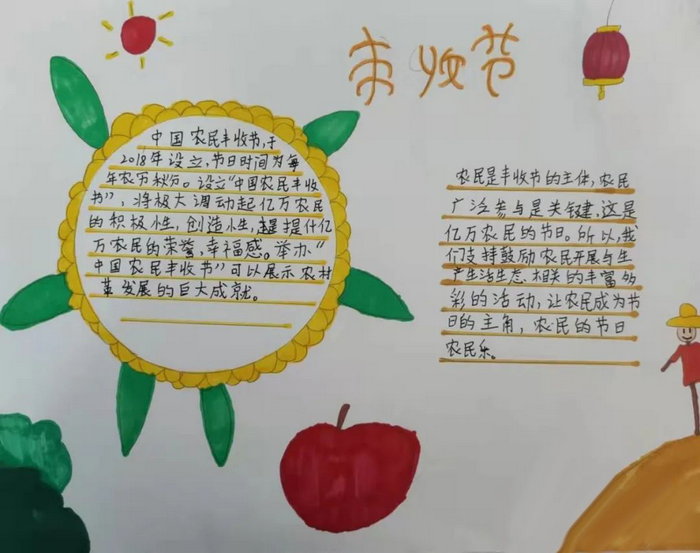 丰收节
中国农民丰收节,于
2018年设立,节日时间为每
年农历秋分。设立"中国农民丰收
节",将极大调动起亿万农民
的积极性,创造性,提升亿
万农民的荣誉,幸福感。举办"
中国农民丰收节"可以展示农村
革发展的巨大成就。
农民是丰收节的主体,农民
广泛参与是关键,这是
亿万农民的节日。所以,我
们支持鼓励农民开展与生
产生活生态,相关的丰富多
彩的活动,让农民成为节
日的主角,农民的节日
农民乐。